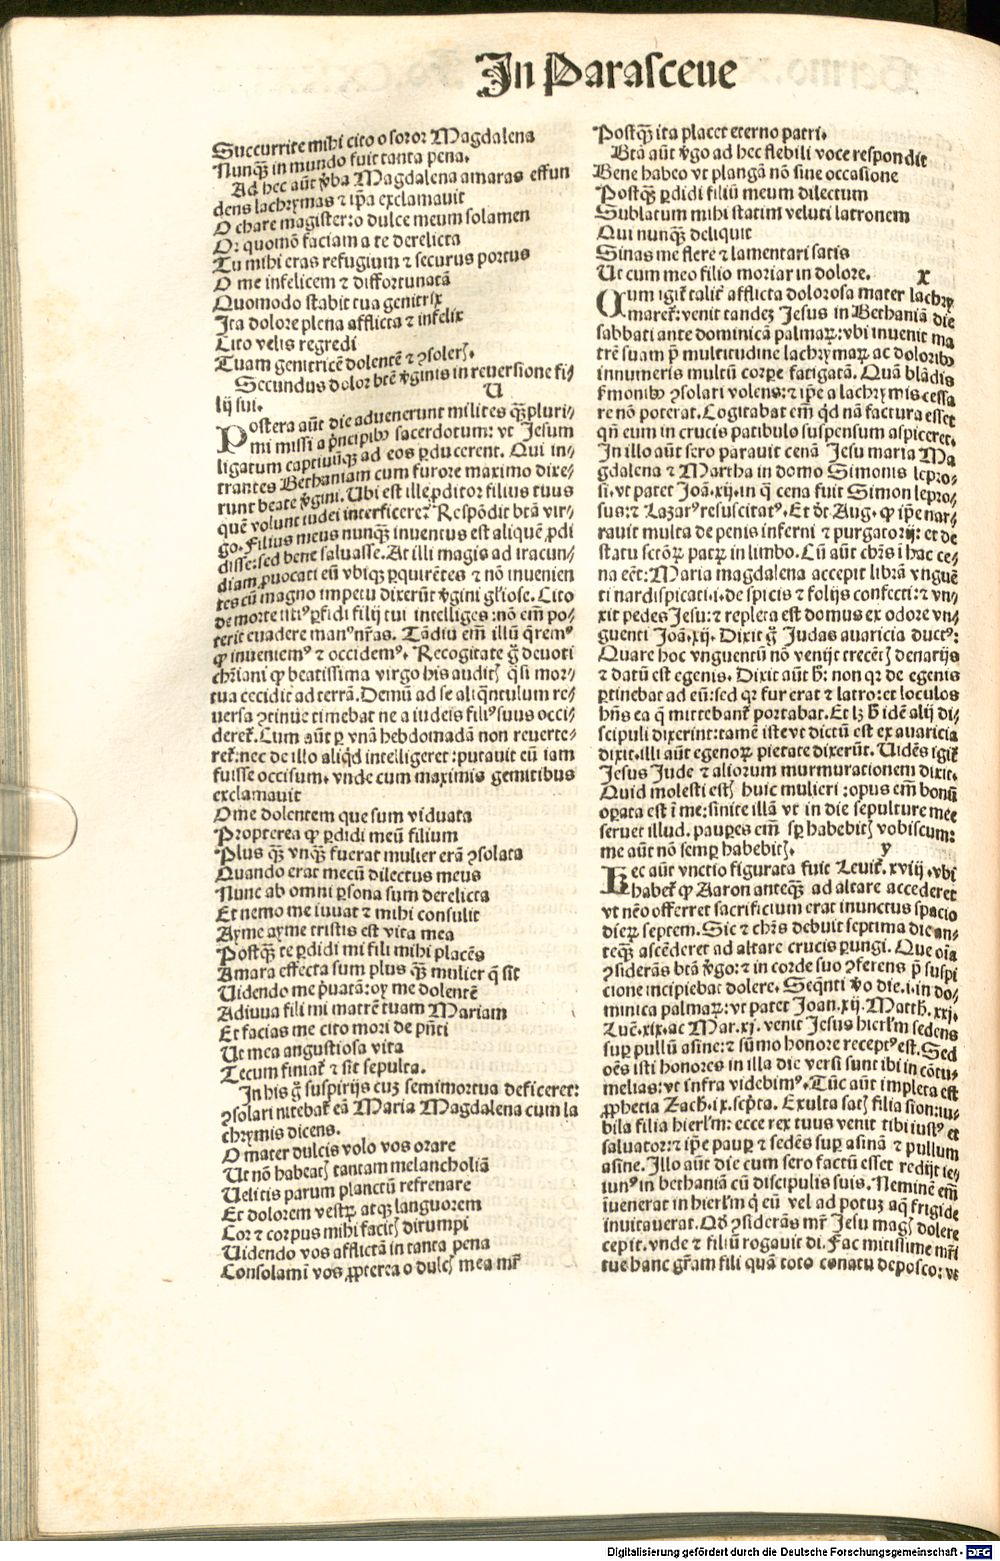 In Parasceue
Succurrite mihi cito o soror Magdalena
Nunqꝫ in mundo fuit tanta pena.
Ad hec aūt v̄ba Magdalena amaras effun
dens lachrymas ⁊ ip̄a exclamauit
O chare magister: o dulce meum solamen
Or quomō faciam a te derelicta
Tu mihi eras refugium ⁊ securus portus
O me infelicem ⁊ diffortunatā
Quomodo stabit tua genitrix
Ita dolore plena afflicta ⁊ infelix
Cito velis regredi
Tuam genitricē dolentē ⁊ ꝯsoler̄.
Secundus dolor btē v̄ginis in reuersione fi⸗
lij sui. U
Postera aūt die aduenerunt milites qꝫ pluri⸗
mi missi a pncipibꝰ sacerdotum: vt Jesum
ligatum captiuūqꝫ ad eos ꝑducerent. Qui in⸗
trantes Bethaniam cum furore maximo dixe⸗
runt beate v̄gini. Ubi est ille ꝑditor filius tuus
quē volunt iudei interficere? Respōdit btā vir⸗
go. Filius meus nunqꝫ inuentus est aliquē ꝑdi
disse: sed bene saluasse. At illi magis ad iracun⸗
diam ꝓuocati eū vbiqꝫ ꝑquirētes ⁊ nō inuenien
tes cū magno impetu dixerūt v̄gini gl̄iose. Cito
de morte titiꝰ ꝑfidi filij tui intelliges: nō em̄ po⸗
terit euadere manꝰ nr̄as. Tādiu em̄ illū q̄remꝰ
ꝙ inueniemꝰ ⁊ occidemꝰ. Recogitate g̊ deuoti
chr̄iani ꝙ beatissima virgo his auditꝭ q̄si mor⸗
tua cecidit ad terrā. Demū ad se aliqn̄tulum re⸗
uersa ꝯtinue timebat ne a iudeis filiꝰ suus occi⸗
deret᷑. Cum aūt ꝑ vnā hebdomadā non reuerte⸗
ret᷑: nec de illo aliqd intelligeret: putauit eū iam
fuisse occisum. vnde cum maximis gemitibus
exclamauit
O me dolentem que sum viduata
Propterea ꝙ ꝑdidi meū filium
Plus qꝫ vnqꝫ fuerat mulier erā ꝯsolata
Quando erat mecū dilectus meus
Nunc ab omni ꝑsona sum derelicta
Et nemo me iuuat ⁊ mihi consulit
Ayme ayme tristis est vita mea
Postqꝫ te ꝑdidi mi fili mihi placēs
Amara effecta sum plus qꝫ mulier q̄ sit
Uidendo me p̄uatā: oy me dolentē
Adiuua fili mi matrē tuam Mariam
Et facias me cito mori de pn̄ti
Ut mea angustiosa vita
Tecum finiat᷑ ⁊ sit sepulta.
In his g̊ suspirijs cuꝫ semimortua deficeret:
ꝯsolari nitebat᷑ eā Maria Magdalena cum la
chrymis dicens.
O mater dulcis volo vos orare
Ut nō habeatꝭ tantam melancholiā
Uelitis parum planctū refrenare
Et dolorem vestꝝ atqꝫ languorem
Cor ⁊ corpus mihi facitꝭ dirumpi
Uidendo vos afflictā in tanta pena
Consolamī vos ꝓpterea o dulcꝭ mea mr̄
Postqꝫ ita placet eterno patri.
Btā aūt v̄go ad hec flebili voce respondit
Bene habeo vt plangā nō sine occasione
Postqꝫ ꝑdidi filiū meum dilectum
Sublatum mihi statim veluti latronem
Qui nunqꝫ deliquit
Sinas me flere ⁊ lamentari satis
Ut cum meo filio moriar in dolore. X
Qum igit᷑ talit᷑ afflicta dolorosa mater lachry
maret᷑: venit tandeꝫ Jesus in Bethaniā die
sabbati ante dominicā palmaꝝ: vbi inuenit ma
trē suam p̄ multitudine lachrymaꝝ ac doloribꝰ
innumeris multū corꝑe fatigatā. Quā blādis
s̄monibꝰ ꝯsolari volens: ⁊ ip̄e a lachrymis cessa
re nō poterat. Cogitabat em̄ qd nā factura esset
qn̄ eum in crucis patibulo suspensum aspiceret.
In illo aūt sero parauit cenā Jesu maria Ma
gdalena ⁊ Martha in domo Simonis lepro⸗
si. vt patet Joā. xij. in q̄ cena fuit Simon lepro⸗
sus: ⁊ Lazarꝰ resuscitatꝰ. Et d̄t Aug. ꝙ ip̄e nar⸗
rauit multa de penis inferni ⁊ purgatorij: et de
statu sctōꝝ patꝝ in limbo. Cū aūt chr̄s ī hac ce⸗
na eēt: Maria magdalena accepit librā vnguē
ti nardi spicati .i. de spicis ⁊ folijs confecti: ⁊ vn⸗
xit pedes Jesu: ⁊ repleta est domus ex odore vn⸗
guenti Joā. xij. Dixit g̊ Judas auaricia ductꝰ:
Quare hoc vnguentū nō venijt trecētꝭ denarijs
⁊ datū est egenis. Dixit aūt h̄: non qr de egenis
ꝑtinebat ad eū: sed qr fur erat ⁊ latro: et loculos
hn̄s ea q̄ mittebant᷑ portabat. Et lꝫ h̄ idē alij di⸗
scipuli dixerint: tamē iste vt dictū est ex auaricia
dixit. illi aūt egenoꝝ pietate dixerūt. Uidēs igit᷑
Jesus Jude ⁊ aliorum murmurationem dixit.
Quid molesti estꝭ huic mulieri: opus em̄ bonū
oꝑata est ī me: sinite illā vt in die sepulture mee
seruet illud. pauꝑes em̄ sꝑ habebitꝭ vobiscum:
me aūt nō semꝑ habebitꝭ. y
Hec aūt vnctio figurata fuit Leuit᷑. xviij. vbi
habet᷑ ꝙ Aaron anteqꝫ ad altare accederet
vt nēo offerret sacrificium erat inunctus spacio
dieꝝ septem. Sic ⁊ chr̄s debuit septima die an⸗
teqꝫ ascēderet ad altare crucis ꝑungi. Que oīa
ꝯsiderās btā v̄go: ⁊ in corde suo ꝯferens p̄ suspi
cione incipiebat dolere. Seqn̄ti v̄o die .i. in do⸗
minica palmaꝝ: vt patet Joan. xij. Matth̄. xxj.
Luc̄. xix. ac Mar. xj. venit Jesus hierl̄m sedens
suꝑ pullū asine: ⁊ sūmo honore receptꝰ est. Sed
oēs isti honores in illa die versi sunt ibi in cōtu⸗
melias: vt infra videbimꝰ. Tūc aūt impleta est
ꝓphetia Zach̄. ix. scp̄ta. Exulta satꝭ filia sion: iu⸗
bila filia hierl̄m: ecce rex tuus venit tibi iustꝰ et
saluator: ⁊ ip̄e pauꝑ ⁊ sedēs suꝑ asinā ⁊ pullum
asine. Illo aūt die cum sero factū esset redijt ie⸗
iunꝰ in bethaniā cū discipulis suis. Neminē em̄
īuenerat in hierl̄m q̇ eū vel ad potuꝫ aq̄ frigide
inuitauerat. Qd̄ ꝯsiderās mr̄ Jesu magꝭ dolere
cepit. vnde ⁊ filiū rogauit di. Fac mitissime mr̄i
tue hanc gr̄am fili quā toto conatu deposco: vt
Digitalisierung gefördert durch die Deutsche Forschungsgemeinschaft - DFG